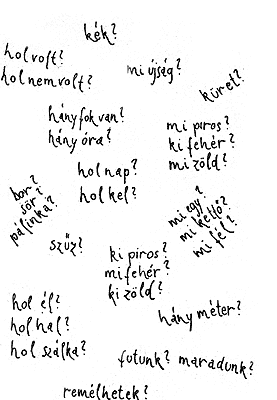 kék?
hol volt?
hol nem volt?
mi újság?
küret?
hány fok van?
hány óra?
mi piros?
ki fehér?
mi zöld?
hol nap?
hol kel?
bor?
sör?
pálinka?
mi egy?
mi kettő?
mi fél?
szűz?
ki piros?
mi fehér?
ki zöld?
hol él?
hol hal?
hol szálka?
hány méter?
futunk? maradunk?
remélhetek?